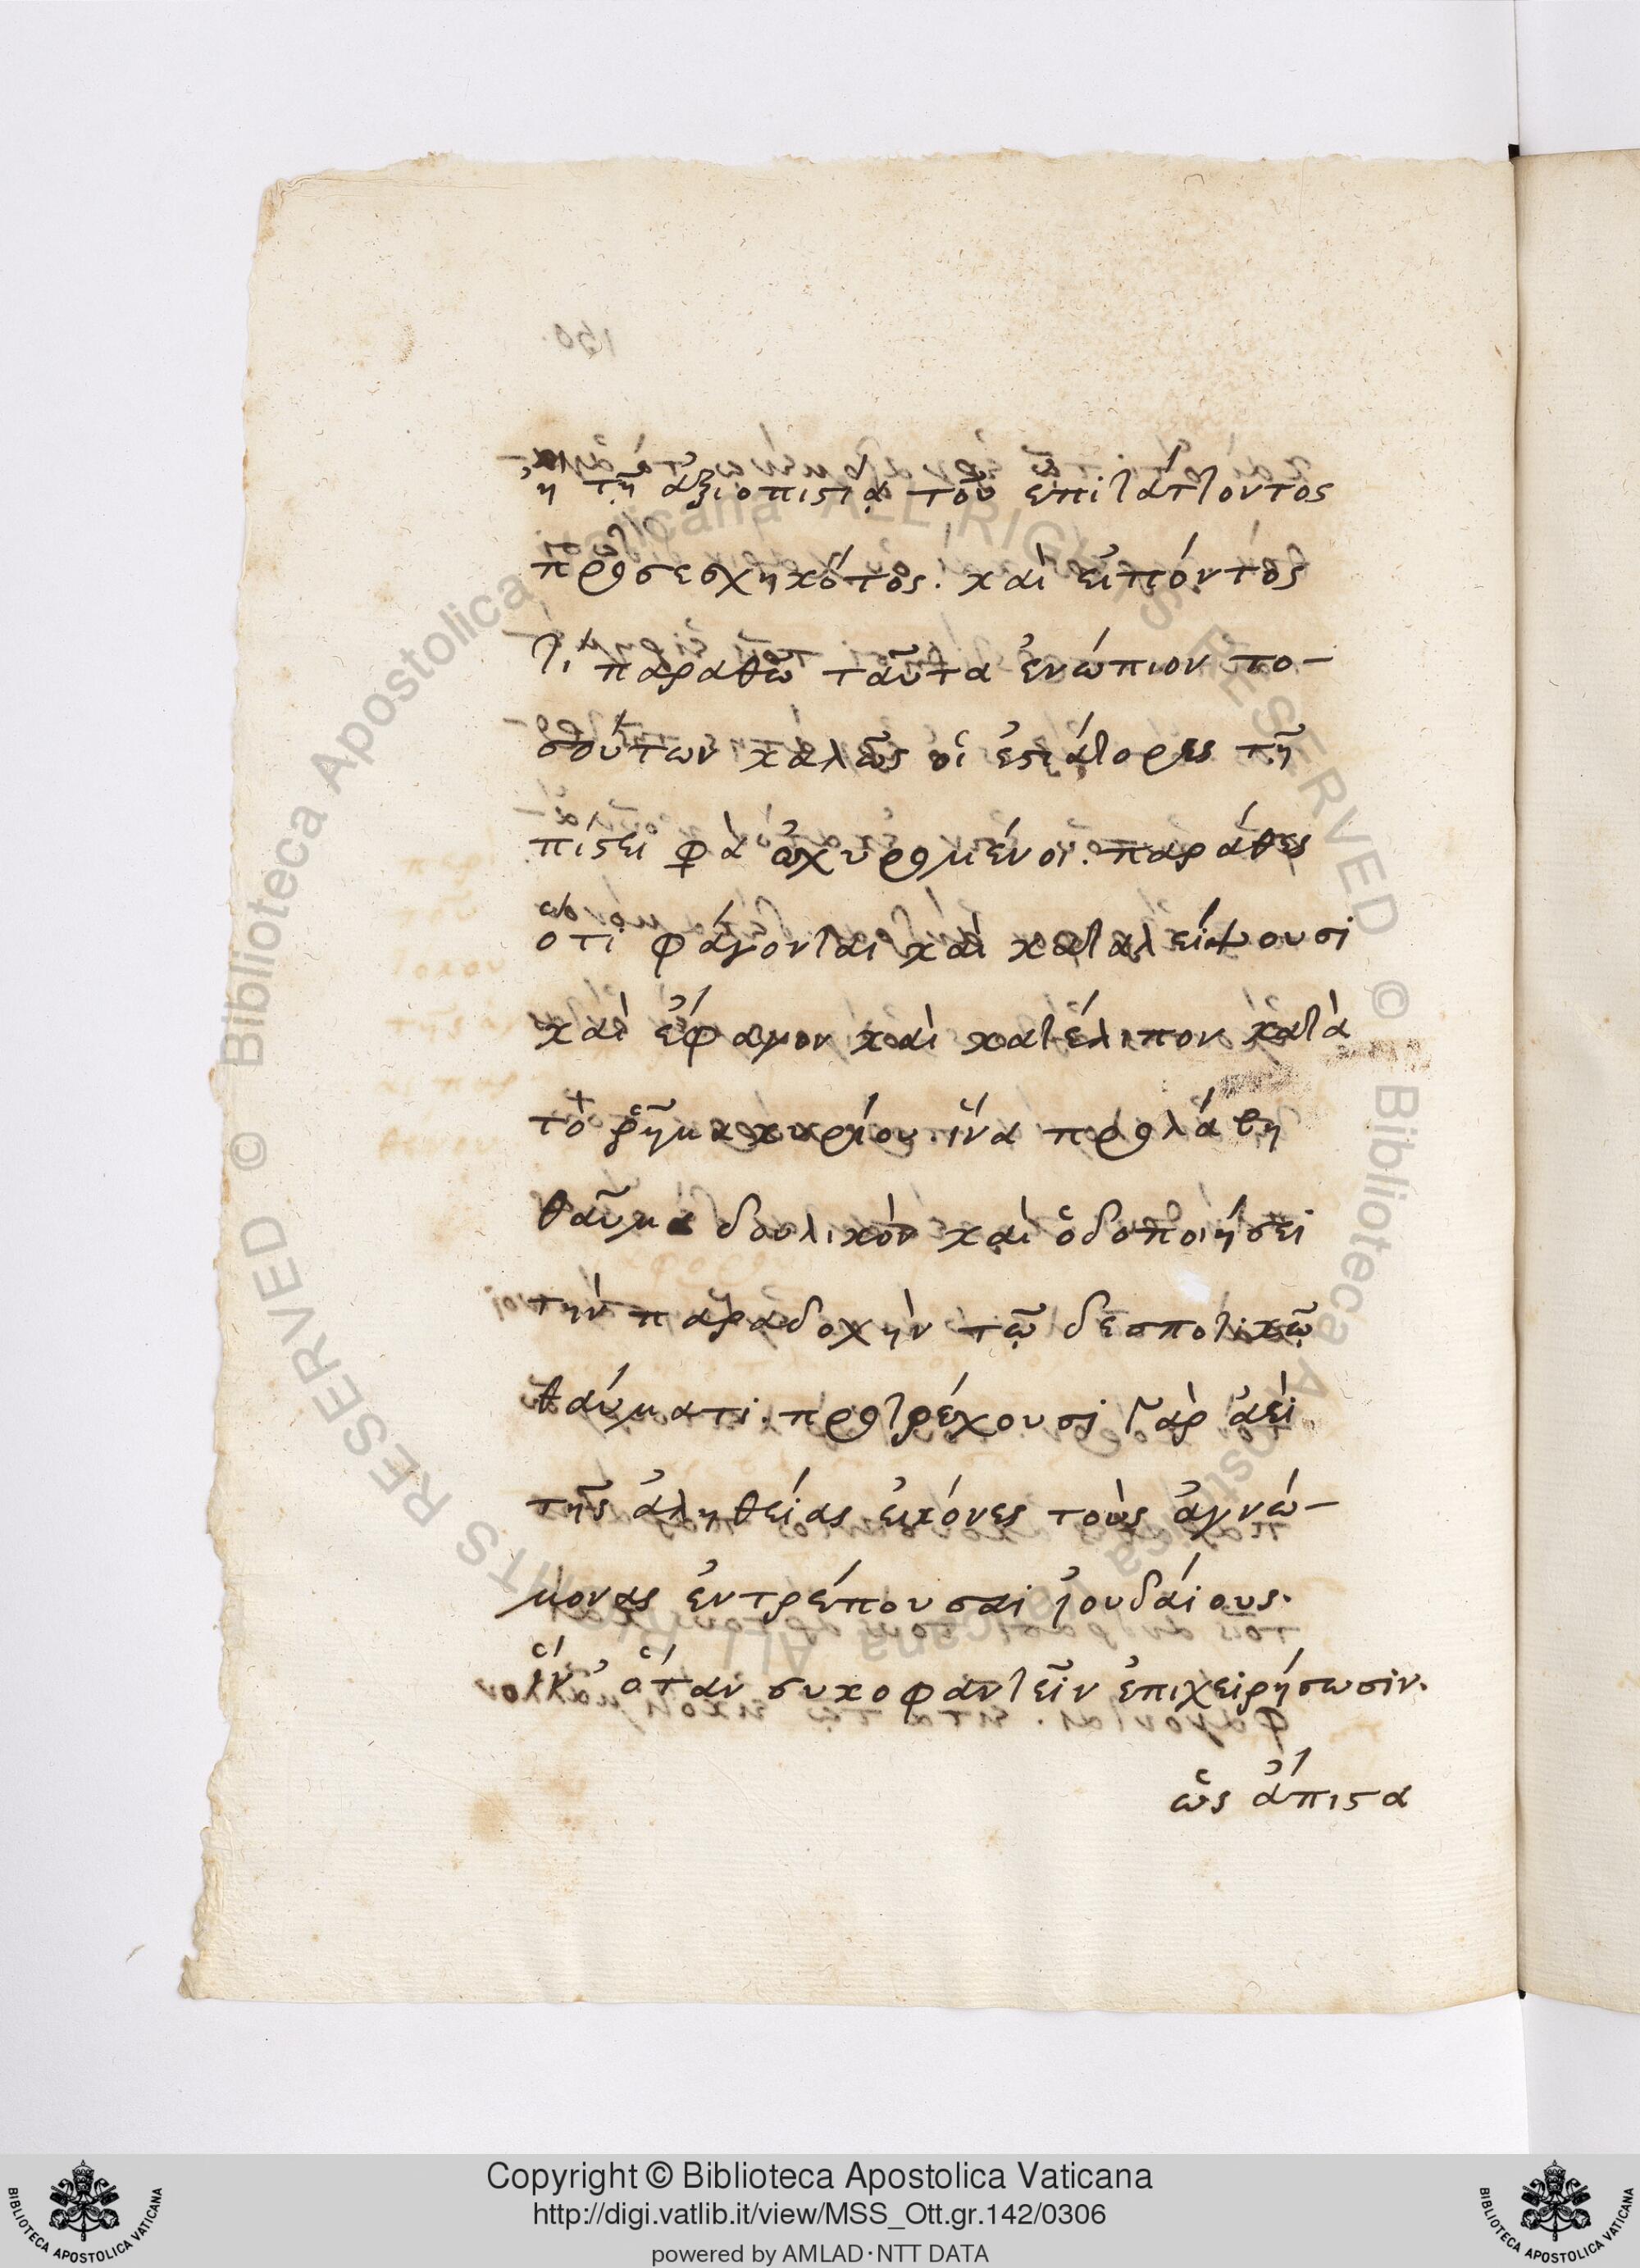 ἢ τῇ ἀξιοπιστίᾳ τοῦ ἐπιτάττοντος
προσεσχηκότος. καὶ εἰπόντος
τί παραθῶ ταῦτα ἐνώπιον το-
σούτων καλῶς οἱ ἑστιάτορες τῇ
πίστει ὠχυρωμένοι. παράθες
ὅτι φάγονται καὶ καταλείψουσι
καὶ ἔφαγον καὶ κατέλιπον κατὰ
τὸ ῥῆμα κυρίου. ἵνα προλάβῃ
θαῦμα δουλικὸν καὶ ὁδοποιήσει
τὴν παραδοχὴν τῷ δεσποτικῷ
θαύματι. προτρέχουσι γὰρ ἀεὶ
τῆς ἀληθείας εἰκόνες τοὺς ἀγνώ-
μονας ἐντρέπουσαι ἰουδαίους.
ἵν' ὅταν συκοφαντεῖν ἐπιχειρήσωσιν.
ὡς ἄπιστα
Copyright © Biblioteca Apostolica Vaticana
http://digi.vatlib.it/view/MSS_Ott.gr.142/0306
powered by AMLAD·NTT DATA
BIBLIOTECA APOSTOLICA VATICANA
BIBLIOTECA APOSTOLICA VATICANA